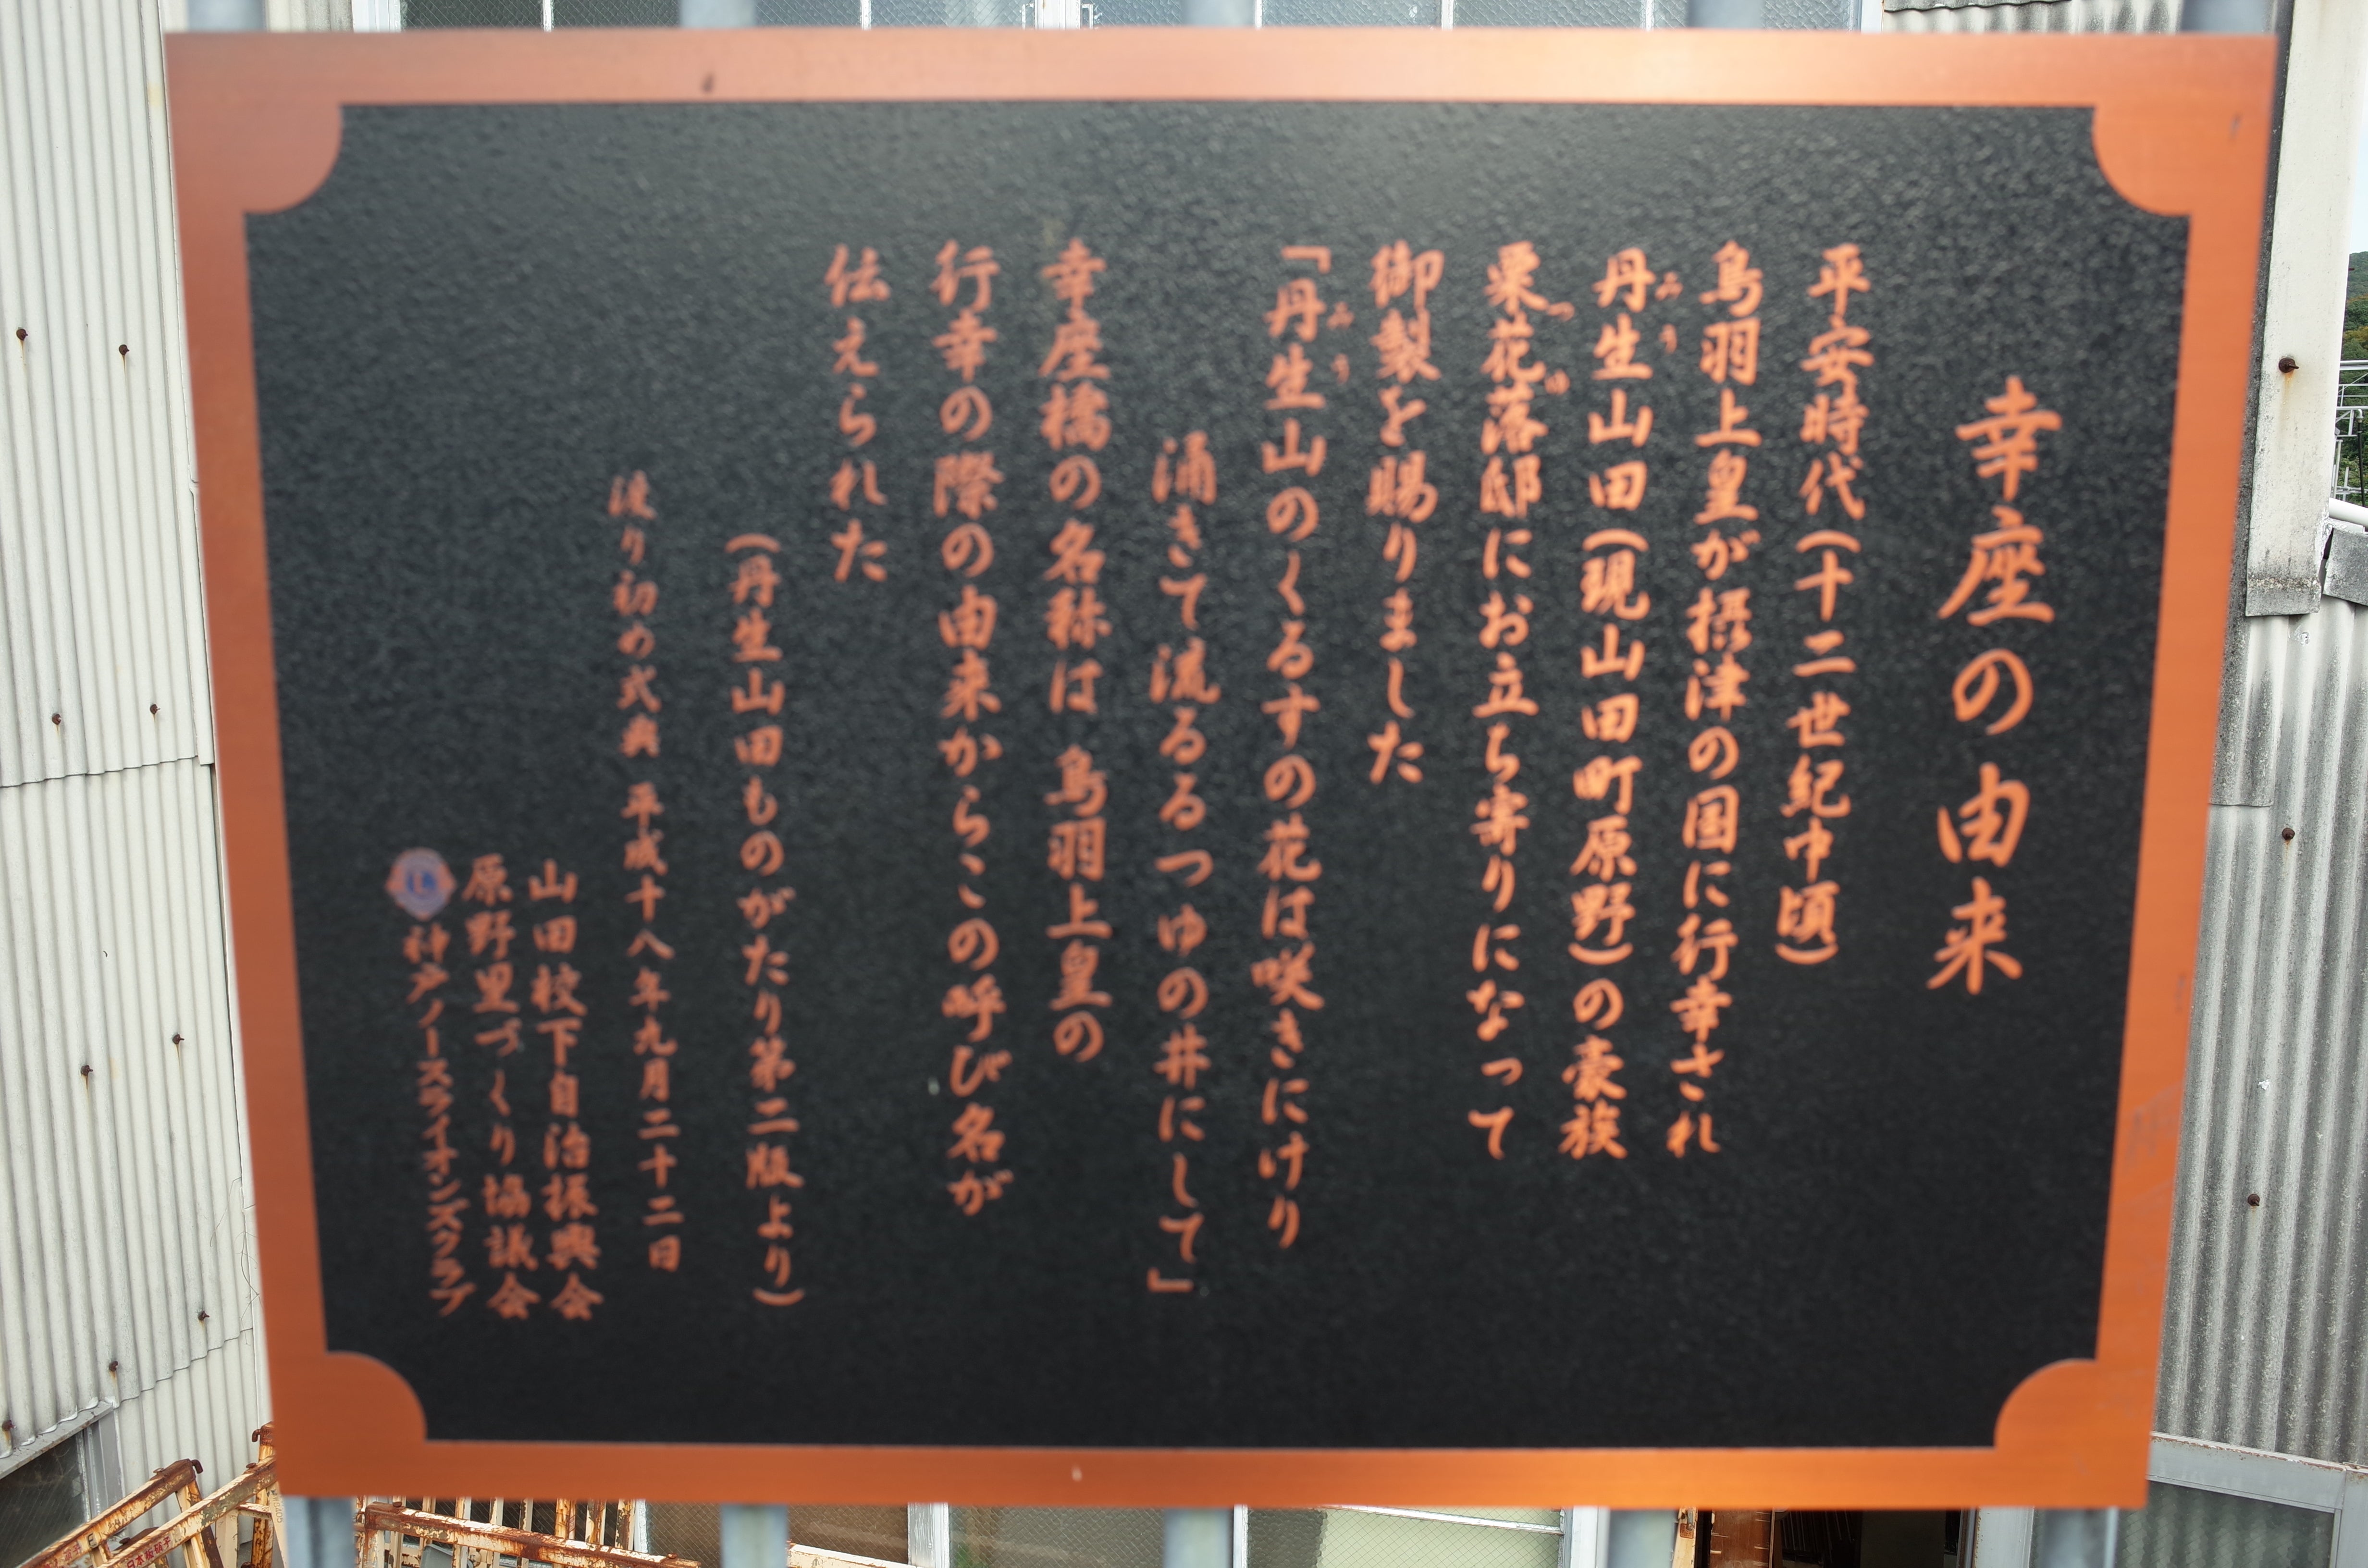 幸座の由来
平安時代(十二世紀中頃)
鳥羽上皇が摂津の国に行幸され
丹生山田(現山田町原野)の豪族
栗花落邸にお立ち寄りになって
御製を賜りました
「丹生山のくるすの花は咲きにけり
涌きて流るるつゆの井にして」
幸座橋の名称は 鳥羽上皇の
行幸の際の由来からこの呼び名が
伝えられた
(丹生山田ものがたり第二版より)
渡り初め式典 平成十八年九月二十二日
山田校下自治振興会
原野里づくり協議会
神戸ノースライオンズクラブ